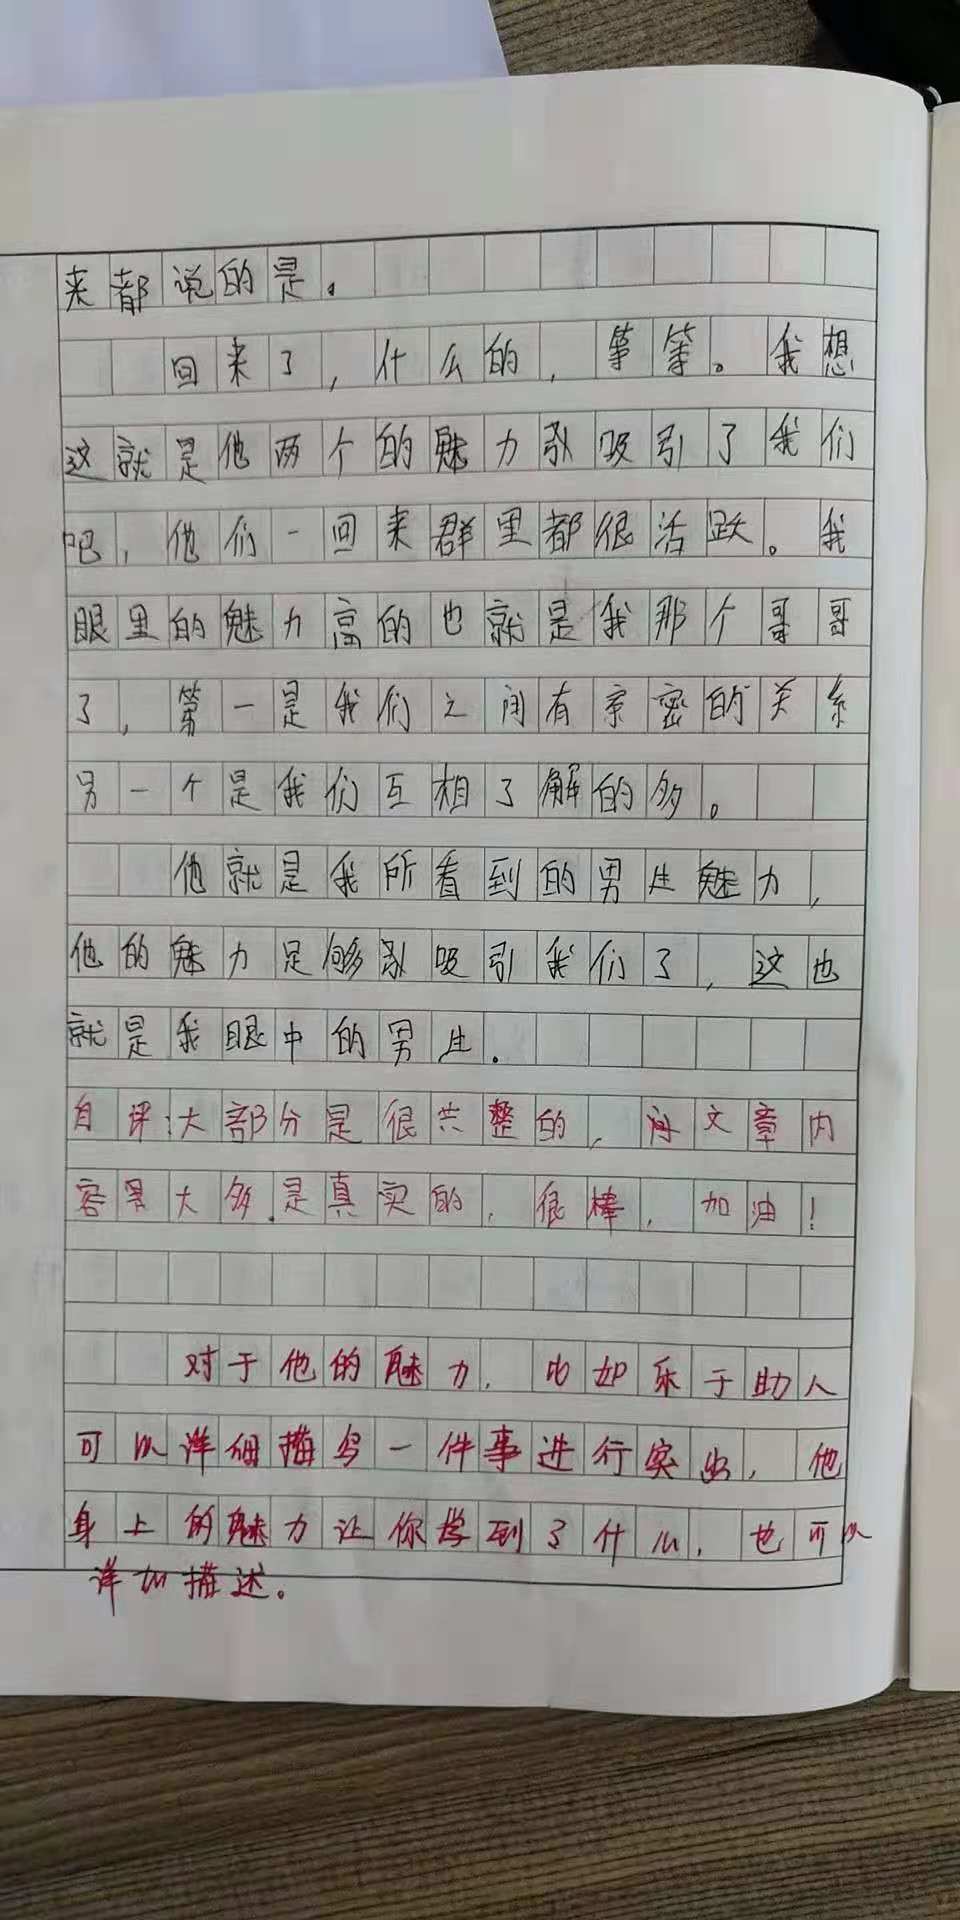 来都说的是。
回来了，什么的，等等。我想
这就是他两个的魅力引吸引了我们
吧，他们一回来群里都很活跃。我
眼里的魅力高的也就是我那个哥哥
了，第一是我们之间有亲密的关系
另一个是我们互相了解的多。
他就是我所看到的男生魅力，
他的魅力足够引吸引我们了，这也
就是我眼中的男生。
自评：大部分是很共整的，文章内
容大多是真实的，很棒，加油！
对于他的魅力，比如乐于助人
可以详细描写一件事进行突出，他
身上的魅力让你学到了什么，也可以
详加描述。